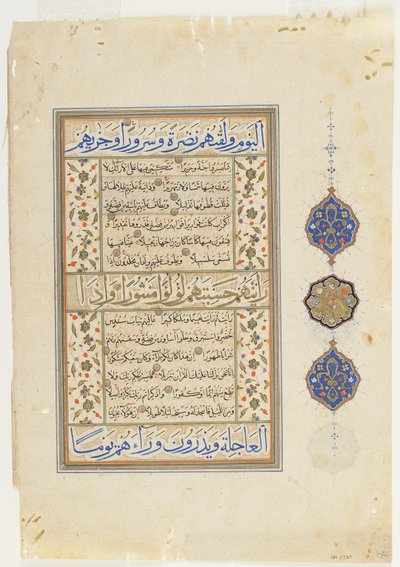 اليوم ولقيهم نضرة وسرورا وجزيهم
بما صبروا جنة وحريرا متكئين فيها على الأرائك لا
يرون فيها شمسا ولا زمهريرا ودانية عليهم ظلالها و
ذللت قطوفها تذليلا ويطاف عليهم بآنية من فضة و
أكواب كانت قواريرا قوارير من فضة قدروها تقديرا و
يسقون فيها كأسا كان مزاجها زنجبيلا عينا فيها
تسمى سلسبيلا ويطوف عليهم ولدان مخلدون إذا
رأيتهم حسبتهم لؤلؤا منثورا وإذا
رأيت ثم رأيت نعيما وملكا كبيرا عاليهم ثياب سندس
خضر وإستبرق وحلوا أساور من فضة وسقيهم ربهم
شرابا طهورا إن هذا كان لكم جزاء وكان سعيكم مشكورا
إنا نحن نزلنا عليك القرآن تنزيلا فاصبر لحكم ربك ولا
تطع منهم آثما أو كفورا واذكر اسم ربك بكرة وأصيلا
ومن الليل فاسجد له وسبحه ليلا طويلا إن هؤلاء يحبون
العاجلة ويذرون وراءهم يوما